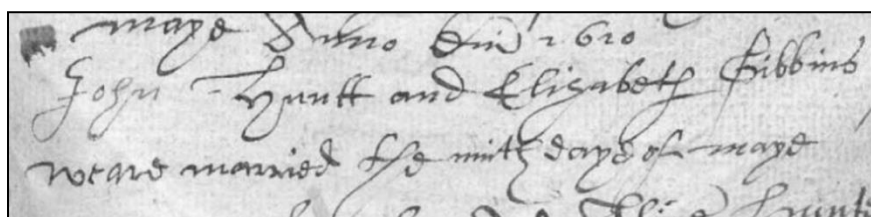 maye Anno dm̄ 1610
John Huntt and Elizabeth Gibbins
weare married the ninth daye of maye